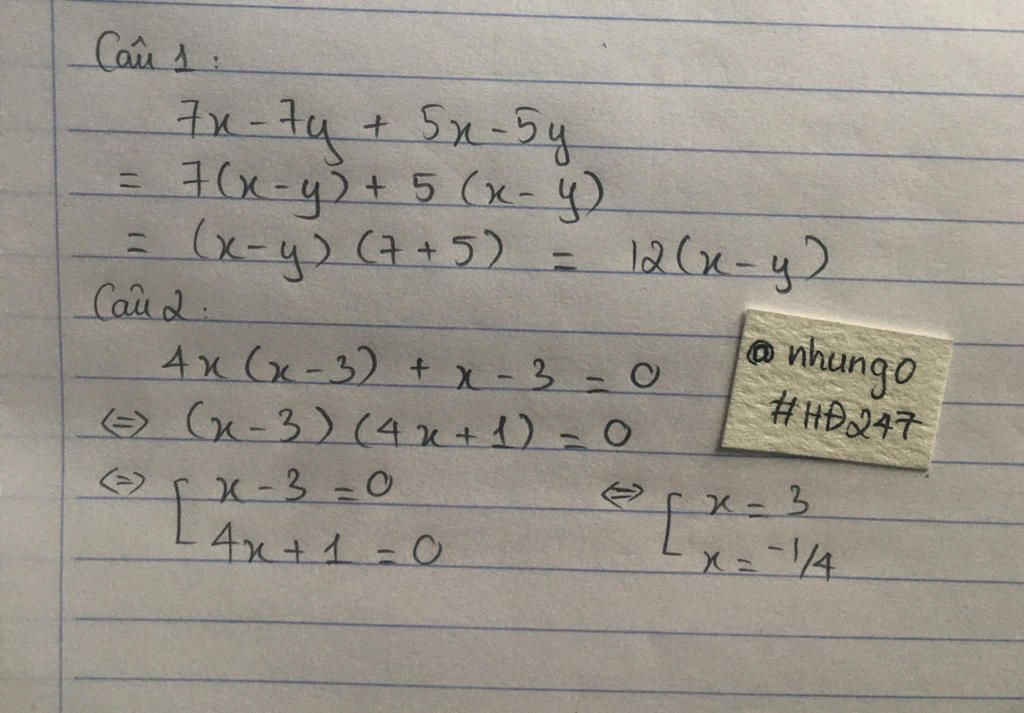 Câu 1 :
7x - 7y + 5x - 5y
= 7(x - y) + 5 (x - y)
= (x - y) (7 + 5) = 12(x - y)
Câu 2 :
4x (x - 3) + x - 3 = 0
⇔ (x - 3) (4x + 1) = 0
⇔ [ x - 3 = 0 ⇔ [ x = 3
4x + 1 = 0 x = -1/4
@nhung0
#HĐ247